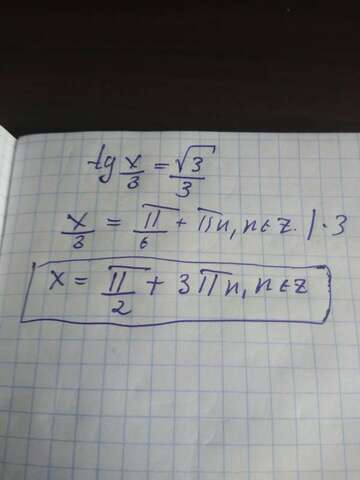 tg x/3 = √3/3
x/3 = π/6 + πn, n∈z. | · 3
x = π/2 + 3πn, n∈z